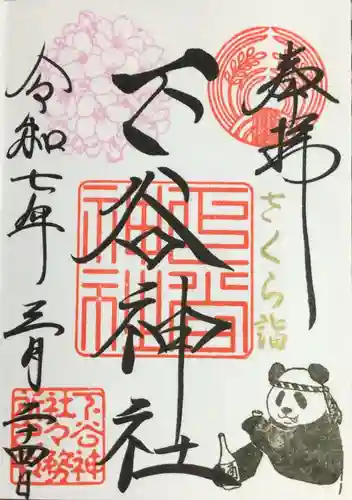 奉拝
さくら詣
下谷神社
下谷神社
令和七年三月二十四日
下谷神
社々務